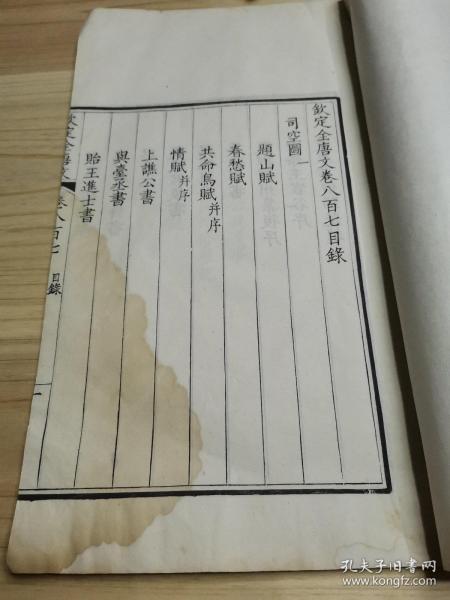 欽定全唐文卷八百七目錄
司空圖一
題山賦
春愁賦
共命鳥賦并序
情賦并序
上譙公書
與臺丞書
貽王進士書
欽定全唐文 卷八百七 目錄 一
孔夫子旧书网
www.kongfz.com